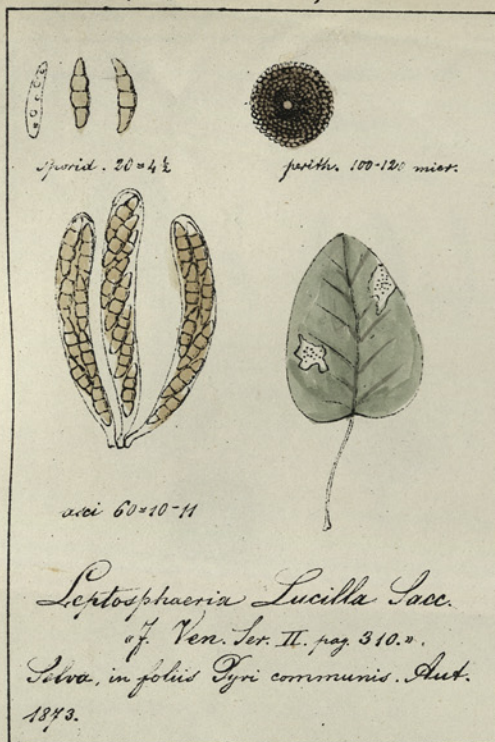 sporid. 20=4½
perith. 100-120 micr.
asci 60=10-11
Leptosphaeria Lucilla Sacc.
"F. Ven. Ser. II. pag. 310.".
Selva, in foliis Pyri communis. Aut.
1873.